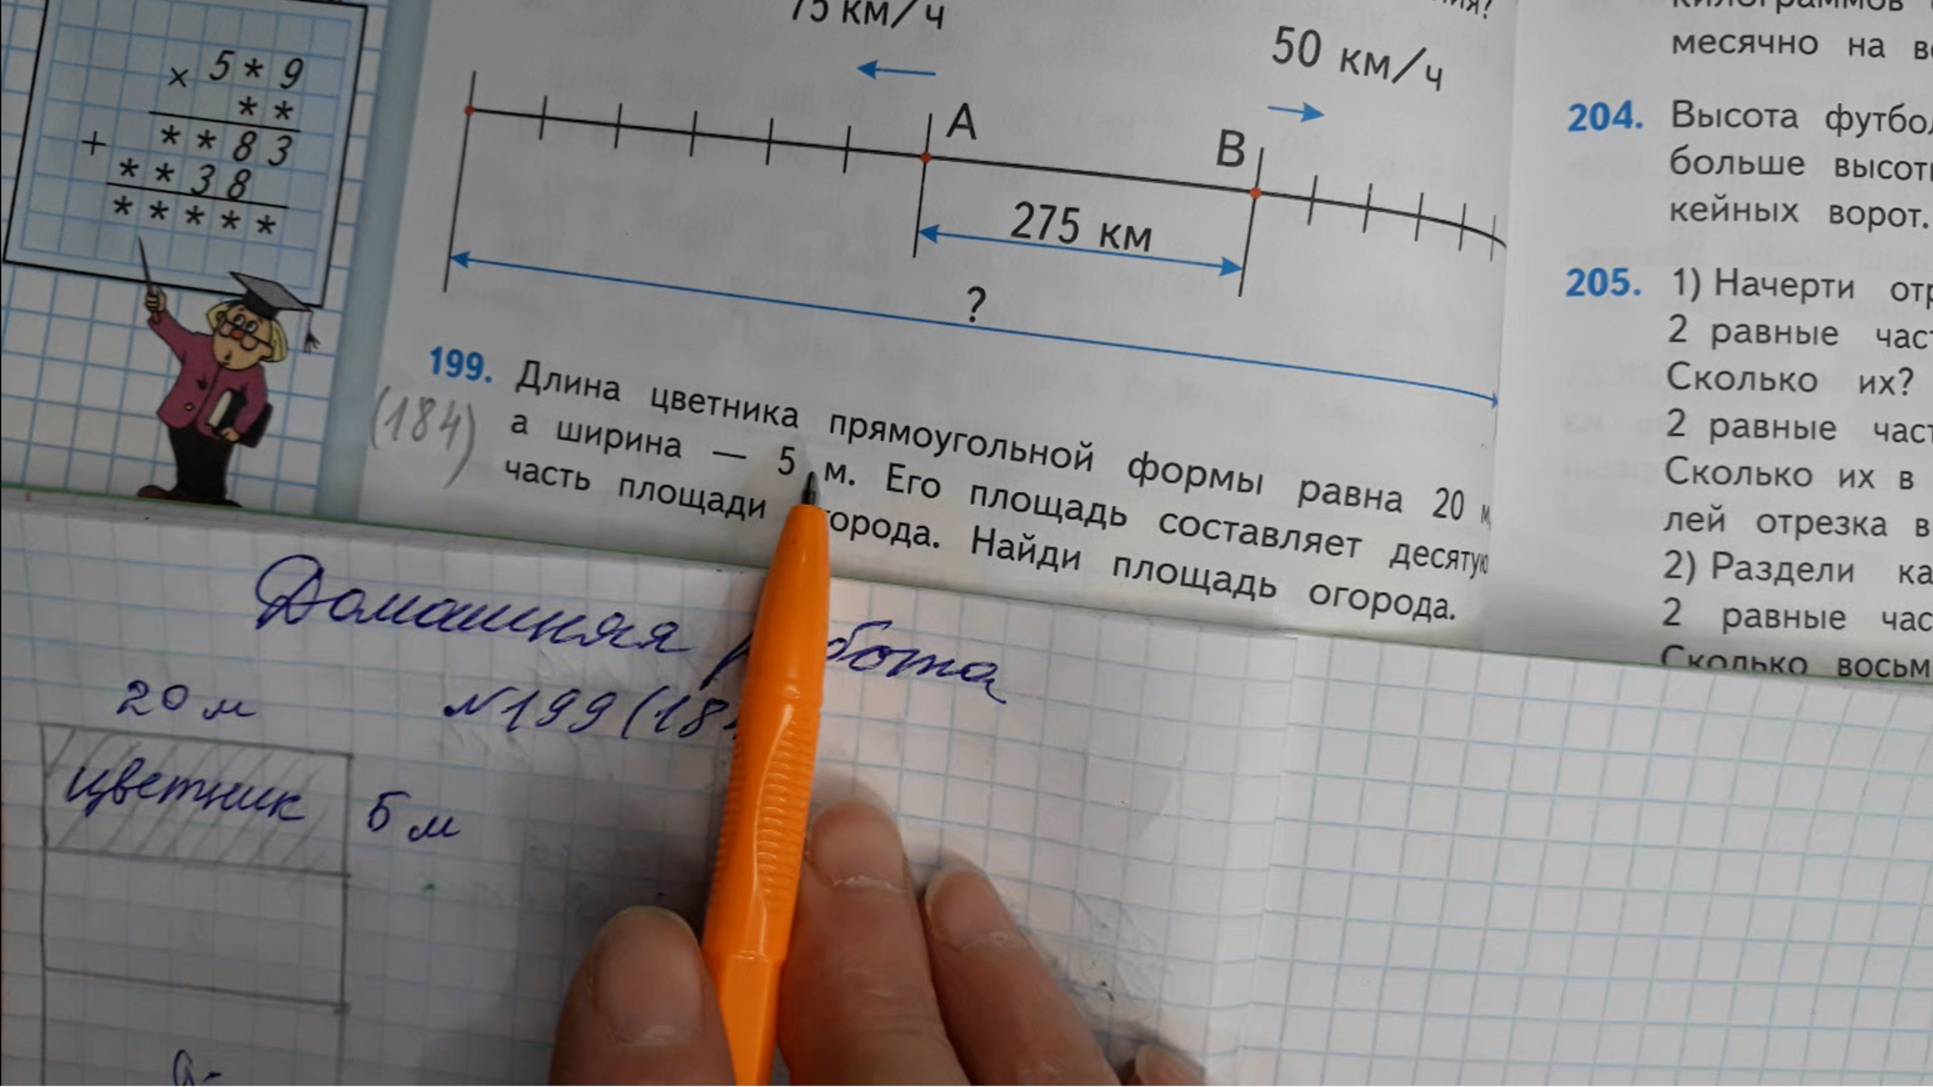 5 * 9
× * *
* * 8 3
+ * * 3 8
* * * * *
75 км/ч
50 км/ч
A
B
275 км
?
199. Длина цветника прямоугольной формы равна 20 м,
(184) а ширина — 5 м. Его площадь составляет десятую
часть площади огорода. Найди площадь огорода.
месячно на
204. Высота
больше
кейных ворот.
205. 1) Начерти
2 равные
Сколько их?
2 равные
Сколько их в
лей отрезка в
2) Раздели
2 равные
Сколько
Домашняя работа
20 м
№199 (184
цветник 5 м